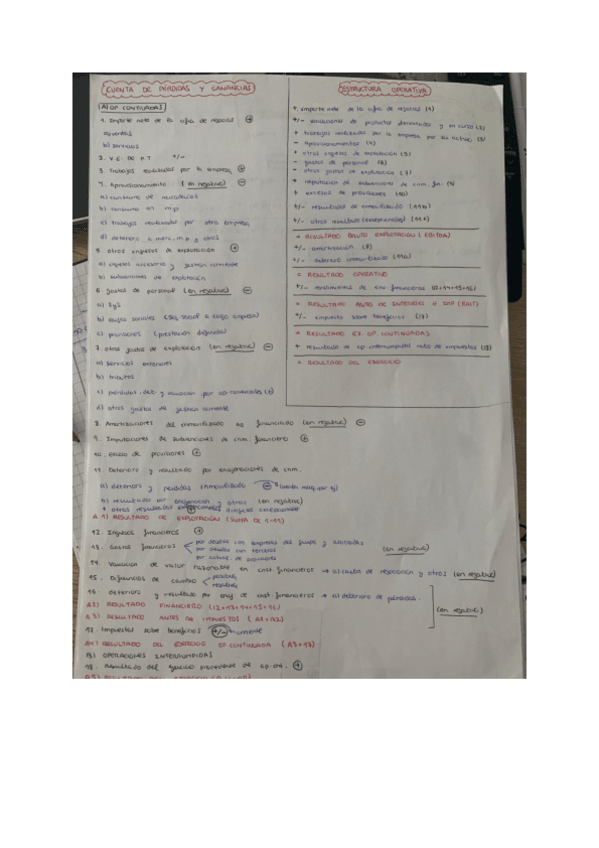 CUENTA DE PÉRDIDAS Y GANANCIAS
A) OP. CONTINUADAS
1. Importe neto de la cifra de negocios +
a) ventas
b) servicios
2. V.E. DE P.T +/-
3. Trabajos realizados por la empresa +
4. Aprovisionamientos (en negativo) -
a) consumo de mercaderías
b) consumo en m.p
c) trabajos realizados por otras empresas
d) deterioro de merc, m.p y otros
5. otros ingresos de explotación +
a) ingresos accesorios y gestión corriente
b) subvenciones de explotación
6. gastos de personal (en negativo) -
a) SyS
b) cargas sociales (seg. social a cargo empresa)
c) provisiones (prestación
7. otros gastos de explotación (en negativo) -
a) servicios exteriores
b) tributos
c) pérdidas, det. y variación por op. comerciales (±)
d) otros gastos de gestión corriente
8. Amortizaciones del inmovilizado (en negativo) -
9. Imputaciones de subvenciones de inm. financiero +
10. exceso de provisiones +
11. Deterioro y resultado por enajenaciones de inm.
a) deterioro y pérdidas inmovilizado -
b) resultado por enajenación y otros (en negativo)
+ otros resultados
A.1) RESULTADO DE EXPLOTACIÓN (SUMA DE 1-11)
12. Ingresos financieros +
13. Gastos financieros por deudas con empresas del grupo y asociadas (en negativo)
por deudas con terceros
por actualiz. de provisiones
14. Variación de valor razonable en inst. financieros → a) cartera de negociación y otros (en negativo)
15. Diferencias de cambio positivas
negativas
16. deterioro y resultado por enaj de inst. financieros → a) deterioro de pérdidas. (en negativo)
A2) RESULTADO FINANCIERO (12+13+14+15+16)
A3) RESULTADO ANTES DE IMPUESTOS (A1+A2)
17. Impuestos sobre beneficios +/-
A4) RESULTADO DEL EJERCICIO OP. CONTINUADA (A3+17)
B) OPERACIONES INTERRUMPIDAS
18. Resultado del ejercicio procedente de op. int. +
ESTRUCTURA OPERATIVA
+ importe neto de la cifra de negocios (1)
+/- variaciones de productos terminados y en curso (2)
+ trabajos realizados por la empresa por su activo (3)
- aprovisionamientos (4)
+ otros ingresos de explotación (5)
- gastos de personal (6)
- otros gastos de explotación (7)
+ imputación de subvenciones de inm. fin. (9)
+ excesos de provisiones (10)
+/- resultados de inmovilizado (11b)
+/- otros resultados (excepcionales) (11c)
= RESULTADO BRUTO EXPLOTACIÓN (EBITDA)
+/- amortización (8)
- deterioro inmovilizado (11a)
= RESULTADO OPERATIVO
+/- rendimientos de inv. financieras (12+14+15+16)
= RESULTADO ANTES DE INTERESES E IMP (RAIT)
+/- impuesto sobre beneficios (17)
= RESULTADO EJ. OP. CONTINUADAS
+ resultado de op. interrumpidas neto de impuestos (18)
= RESULTADO DEL EJERCICIO